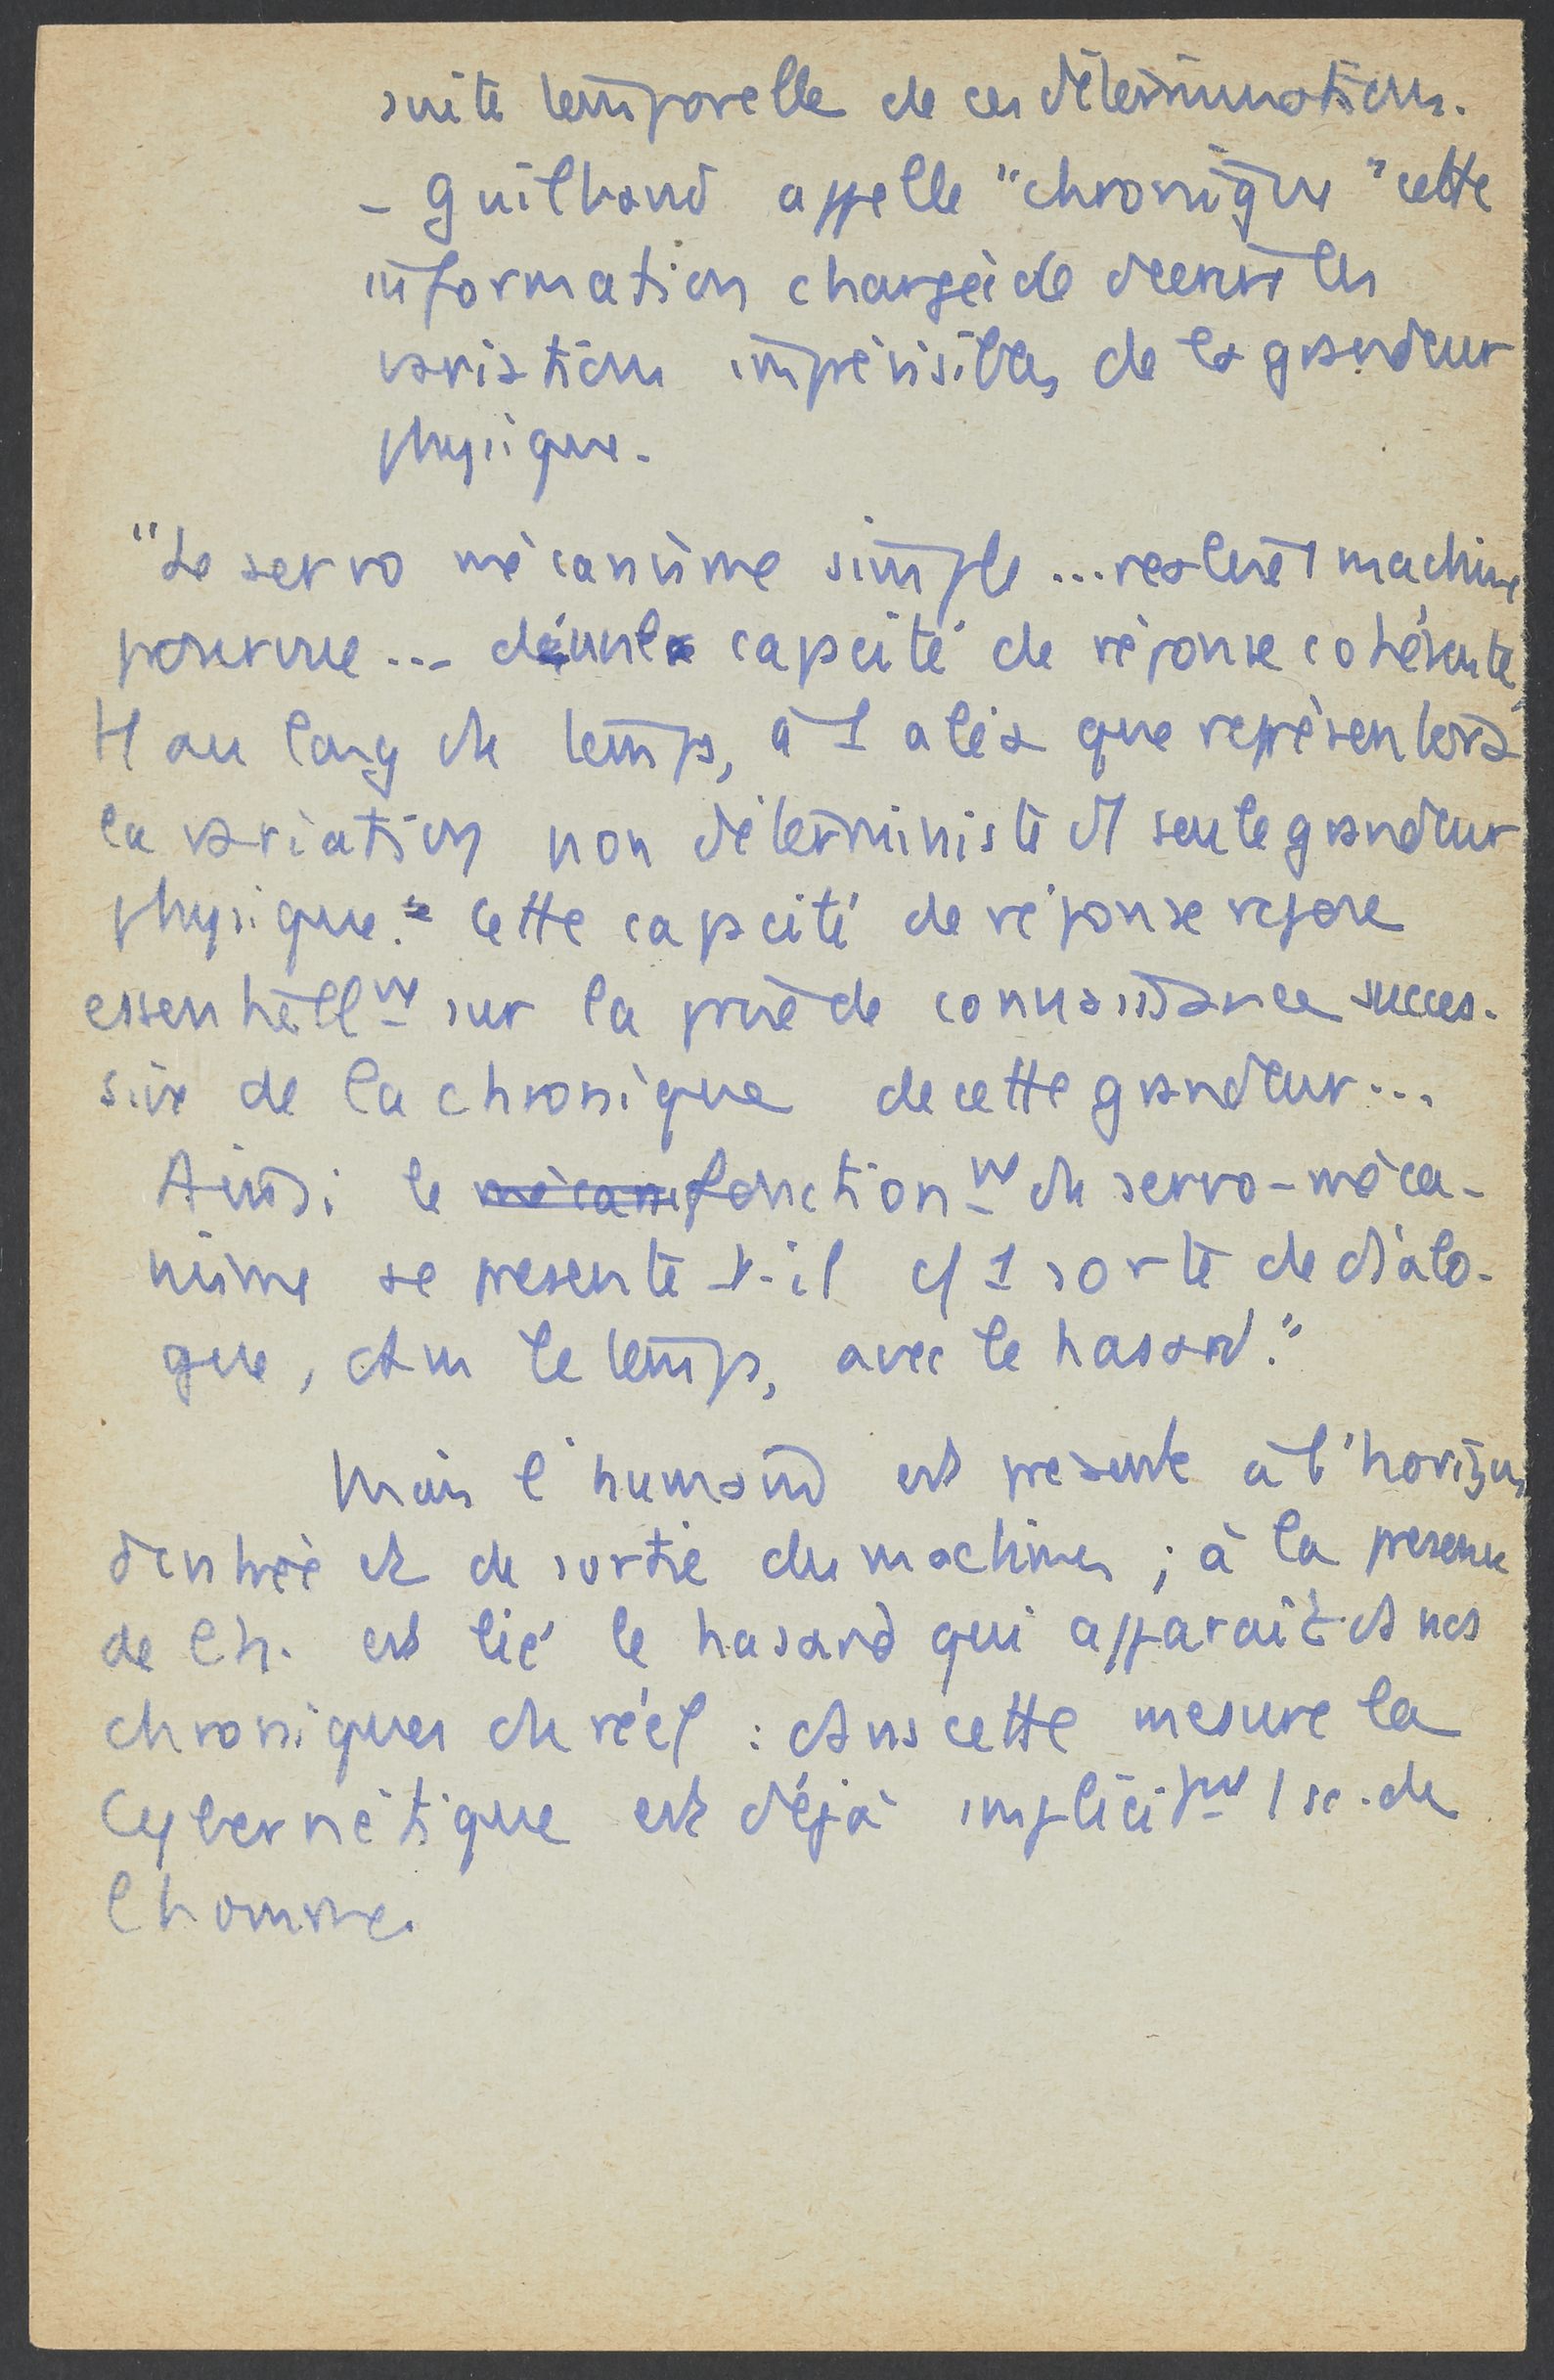 suite temporelle de ces déterminations.
- Guilbaud appelle "chronique" cette
information chargée de décrire les
variations imprévisibles de la grandeur
physique.
"Le servo mécanisme simple ... est 1 machine
pourvue ... d'une capacité de réponse cohérente,
tt au long du temps, à 1 aléa que représentera
la variation non déterministe d'1 seule grandeur
physique." Cette capacité de réponse repose
essentiellmt sur la prise de connaissance succes-
sive de la chronique de cette grandeur ...
Ainsi le fonctionnmt du servo-méca-
nisme se présente-t-il c/ 1 sorte de dialo-
gue, ds le temps, avec le hasard."
Mais l'humain est présent à l'horizon
d'entrée et de sortie des machines ; à la présence
de l'h. est lié le hasard qui apparaît ds nos
chroniques du réel : ds cette mesure la
Cybernétique est déjà implicitmt 1 sc. de
l'homme.